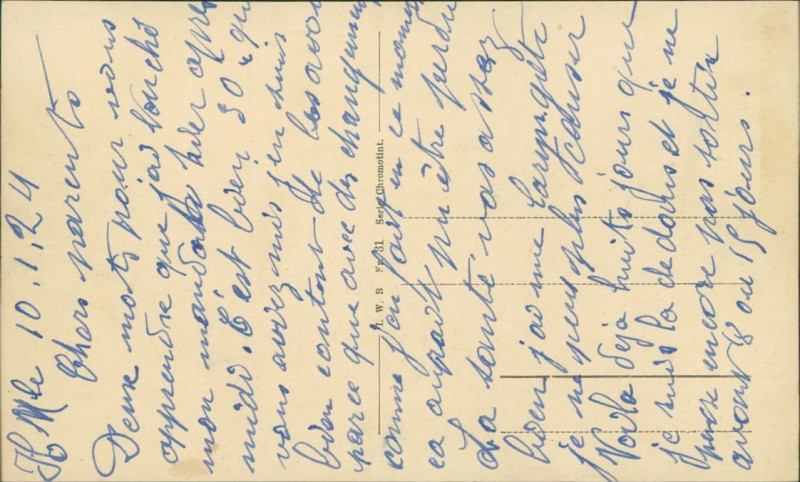 le 10.1.24
Chers parents
Deux mots pour vous
apprendre que j'ai touché
mon mandat hier après
midi. C'est bien 30" que
vous aviez mis j'en suis
bien content de les avoir
parce que avec des changements
comme j'en fait en ce moment
ça
La santé vas assez
bien j'ai une Laryngite
je ne peux plus causer
Voila déja huits jours que
je suis la dedans et je ne
peux encore pas sortir
avant 8 ou 15 jours.
I. W. B Fr 31 Serie Chromotint.